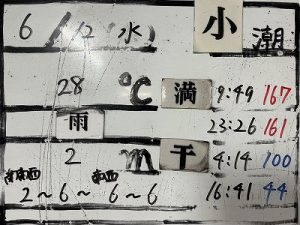 6/12 (水) 小潮
28 ℃ 満 9:49 167
雨 23:26 161
2 m 干 4:14 100
南南西 南西 16:41 44
2～6～6～6